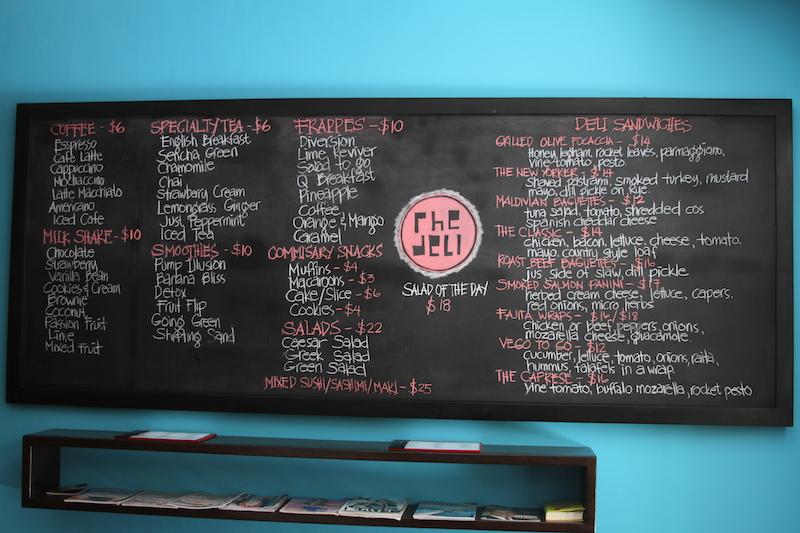 COFFEE - $6
Espresso
Cafe Latte
Cappuccino
Mochaccino
Latte Macchiato
Americano
Iced Cafe
MILK SHAKE - $10
Chocolate
Strawberry
Vanilla Bean
Cookies & Cream
Brownie
Coconut
Passion Fruit
Lime
Mixed Fruit
SPECIALTY TEA - $6
English Breakfast
Sencha Green
Chamomile
Chai
Strawberry Cream
Lemongrass Ginger
Just Peppermint
Iced Tea
SMOOTHIES - $10
Pump Illusion
Banana Bliss
Detox
Fruit Flip
Going Green
Shifting Sand
FRAPPES' - $10
Diversion
Lime Reviver
Salad To go
Q Breakfast
Pineapple
Coffee
Orange & Mango
Caramel
COMMISARY SNACKS
Muffins - $4
Macaroons - $3
Cake/Slice - $6
Cookies - $4
SALADS - $22
Caesar Salad
Greek Salad
Green Salad
MIXED SUSHI/SASHIMI/MAKI - $25
THE
DELI
SALAD OF THE DAY
$18
DELI SANDWICHES
GRILLED OLIVE FOCACCIA - $14
Honey legham, rocket leaves, parmaggiano,
vine tomato, pesto.
THE NEW YORKER - $14
shaved pastrami, smoked turkey, mustard
mayo, dill pickle on rye
MALDIVIAN BAGUETTES - $12
tuna salad, tomato, shredded cos
spanish cheddar cheese
THE CLASSIC - $14
chicken, bacon, lettuce, cheese, tomato.
mayo, country style loaf
ROAST BEEF BAGUETTES - $16
jus, side of slaw, dill pickle
SMOKED SALMON PANINI - $17
herbed cream cheese, lettuce, capers.
red onions, micro herbs
FAJITA WRAPS - $16/$18
chicken or beef, peppers, onions,
mozzarella cheese, guacamole.
VEGO TO GO - $12
cucumber, lettuce, tomato, onions, raita,
hummus, falafels in a wrap.
THE CAPRESE - $16
vine tomato, buffalo mozarella, rocket pesto